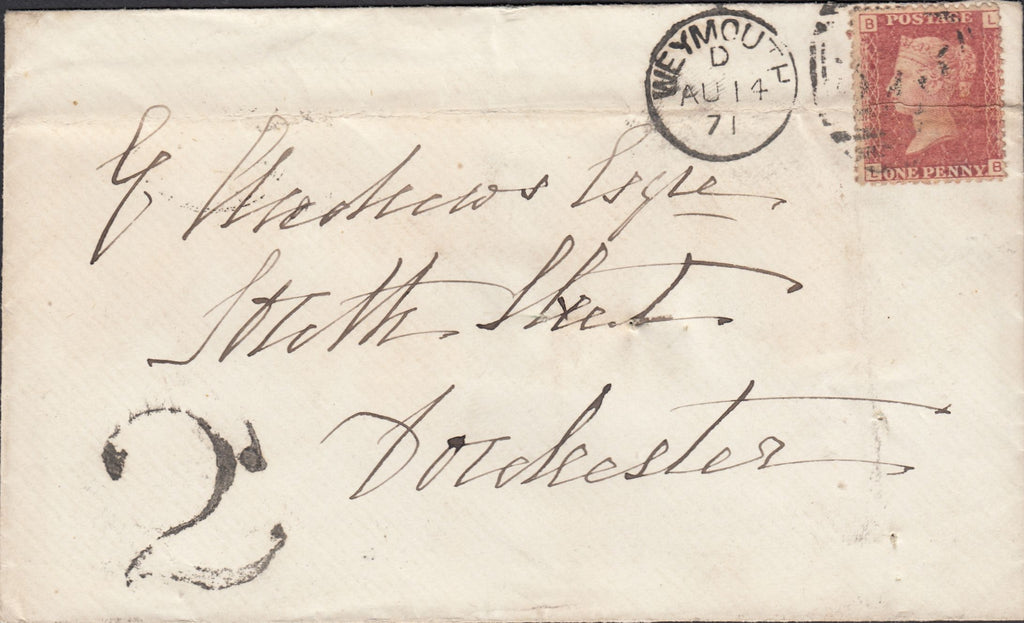 WEYMOUTH
D
AU 14
71
B POSTAGE L
L ONE PENNY B
G Andrews Esqre
South Street
Dorchester
2